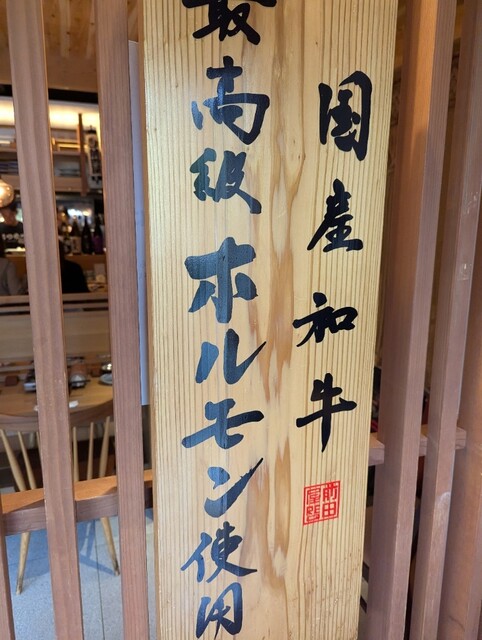 国産和牛
最高級ホルモン使用
前田屋